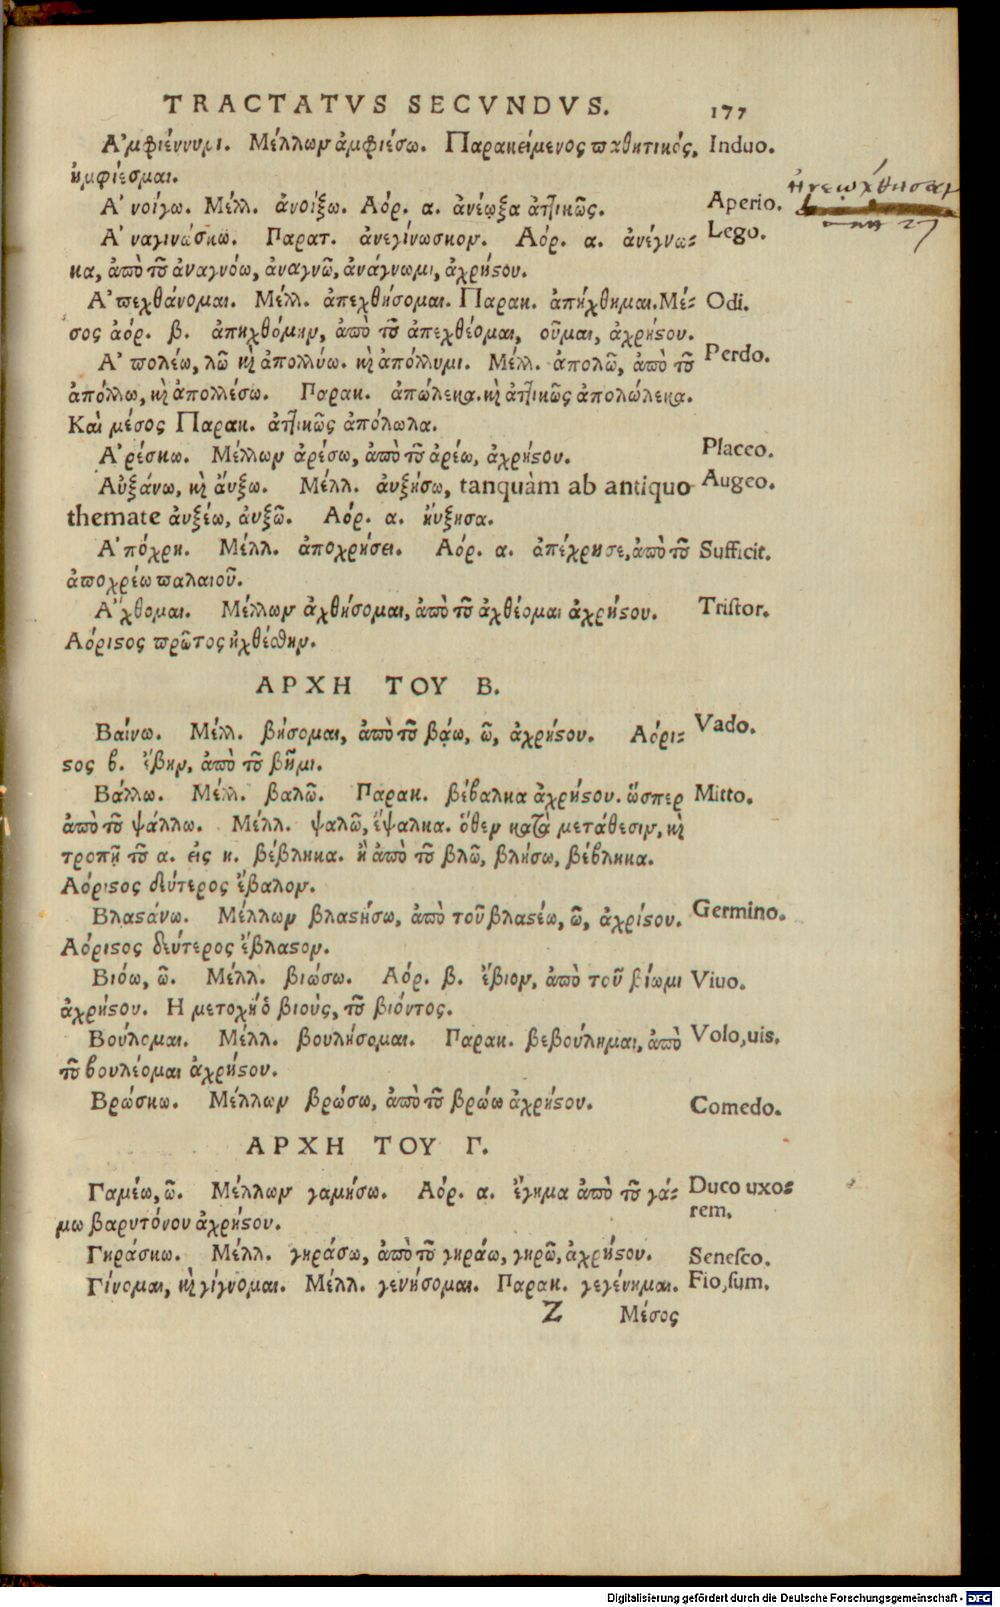 TRACTATVS SECVNDVS. 177
Α᾽μφιέννυμι. Μέλλων ἀμφιέσω. Παρακείμενος παθητικός, Induo.
ἠμφίεσμαι.
Α᾽νοίγω. Μέλλ. ἀνοίξω. Αόρ. α. ἀνέῳξα ἀττικῶς. Aperio.
Α᾽ναγινώσκω. Παρατ. ἀνεγίνωσκον. Αόρ. α. ἀνέγνω- Lego.
κα, ἀπὸ τοῦ ἀναγνόω, ἀναγνῶ, ἀνάγνωμι, ἀχρήϛου.
Α᾽πεχθάνομαι. Μέλλ. ἀπεχθήσομαι. Παρακ. ἀπήχθημαι. Μέ- Odi.
σος ἀόρ. β. ἀπηχθόμην, ἀπὸ τοῦ ἀπεχθέομαι, οῦμαι, ἀχρήϛου.
Α᾽πολέω, λῶ καὶ ἀπολλύω. καὶ ἀπόλλυμι. Μέλλ. ἀπολῶ, ἀπὸ τοῦ Perdo.
ἀπόλλω, καὶ ἀπολλέσω. Παρακ. ἀπώλεκα. καὶ ἀττικῶς ἀπολώλεκα.
Καὶ μέσος Παρακ. ἀττικῶς ἀπόλωλα.
Α᾽ρέσκω. Μέλλων ἀρέσω, ἀπὸ τοῦ ἀρέω, ἀχρήϛου. Placeo.
Αὐξάνω, καὶ ἄυξω. Μέλλ. ἀυξήσω, tanquàm ab antiquo Augeo.
themate ἀυξέω, ἀυξῶ. Αόρ. α. ἤυξησα.
Α᾽πόχρη. Μέλλ. ἀποχρήσει. Αόρ. α. ἀπέχρησε, ἀπὸ τοῦ Sufficit.
ἀποχρέω παλαιοῦ.
Α῎χθομαι. Μέλλων ἀχθήσομαι, ἀπὸ τοῦ ἀχθέομαι ἀχρήϛου. Tristor.
Αόριϛος πρῶτος ἠχθέσθην.
ΑΡΧΗ ΤΟΥ Β.
Βαίνω. Μέλλ. βήσομαι, ἀπὸ τοῦ βάω, ῶ, ἀχρήϛου. Αόρι- Vado.
ϛος β. ἔβην, ἀπὸ τοῦ βῆμι.
Βάλλω. Μέλλ. βαλῶ. Παρακ. βέβαλκα ἀχρήϛου. ὥσπερ Mitto.
ἀπὸ τοῦ ψάλλω. Μέλλ. ψαλῶ, ἔψαλκα. ὅθεν κατὰ μετάθεσιν, καὶ
τροπῇ τοῦ α. εἰς η. βέβληκα. ἢ ἀπὸ τοῦ βλῶ, βλήσω, βέβληκα.
Αόριϛος δεύτερος ἔβαλον.
Βλαϛάνω. Μέλλων βλαϛήσω, ἀπὸ τοῦ βλαϛέω, ῶ, ἀχρίϛου. Germino.
Αόριϛος δεύτερος ἔβλαϛον.
Βιόω, ῶ. Μέλλ. βιώσω. Αόρ. β. ἔβιον, ἀπὸ τοῦ βίωμι Viuo.
ἀχρήϛου. Η μετοχὴ ὁ βιοὺς, τοῦ βιόντος.
Βούλομαι. Μέλλ. βουλήσομαι. Παρακ. βεβούλημαι, ἀπὸ Volo, uis.
τοῦ βουλέομαι ἀχρήϛου.
Βρώσκω. Μέλλων βρώσω, ἀπὸ τοῦ βρώω ἀχρήϛου. Comedo.
ΑΡΧΗ ΤΟΥ Γ.
Γαμέω, ῶ. Μέλλων γαμήσω. Αόρ. α. ἔγημα ἀπὸ τοῦ γά- Duco uxo-
μω βαρυτόνου ἀχρήϛου. rem.
Γηράσκω. Μέλλ. γηράσω, ἀπὸ τοῦ γηράω, γηρῶ, ἀχρήϛου. Senesco.
Γίνομαι, καὶ γίγνομαι. Μέλλ. γενήσομαι. Παρακ. γεγένημαι. Fio, sum.
Z Μέσος
Digitalisierung gefördert durch die Deutsche Forschungsgemeinschaft - DFG